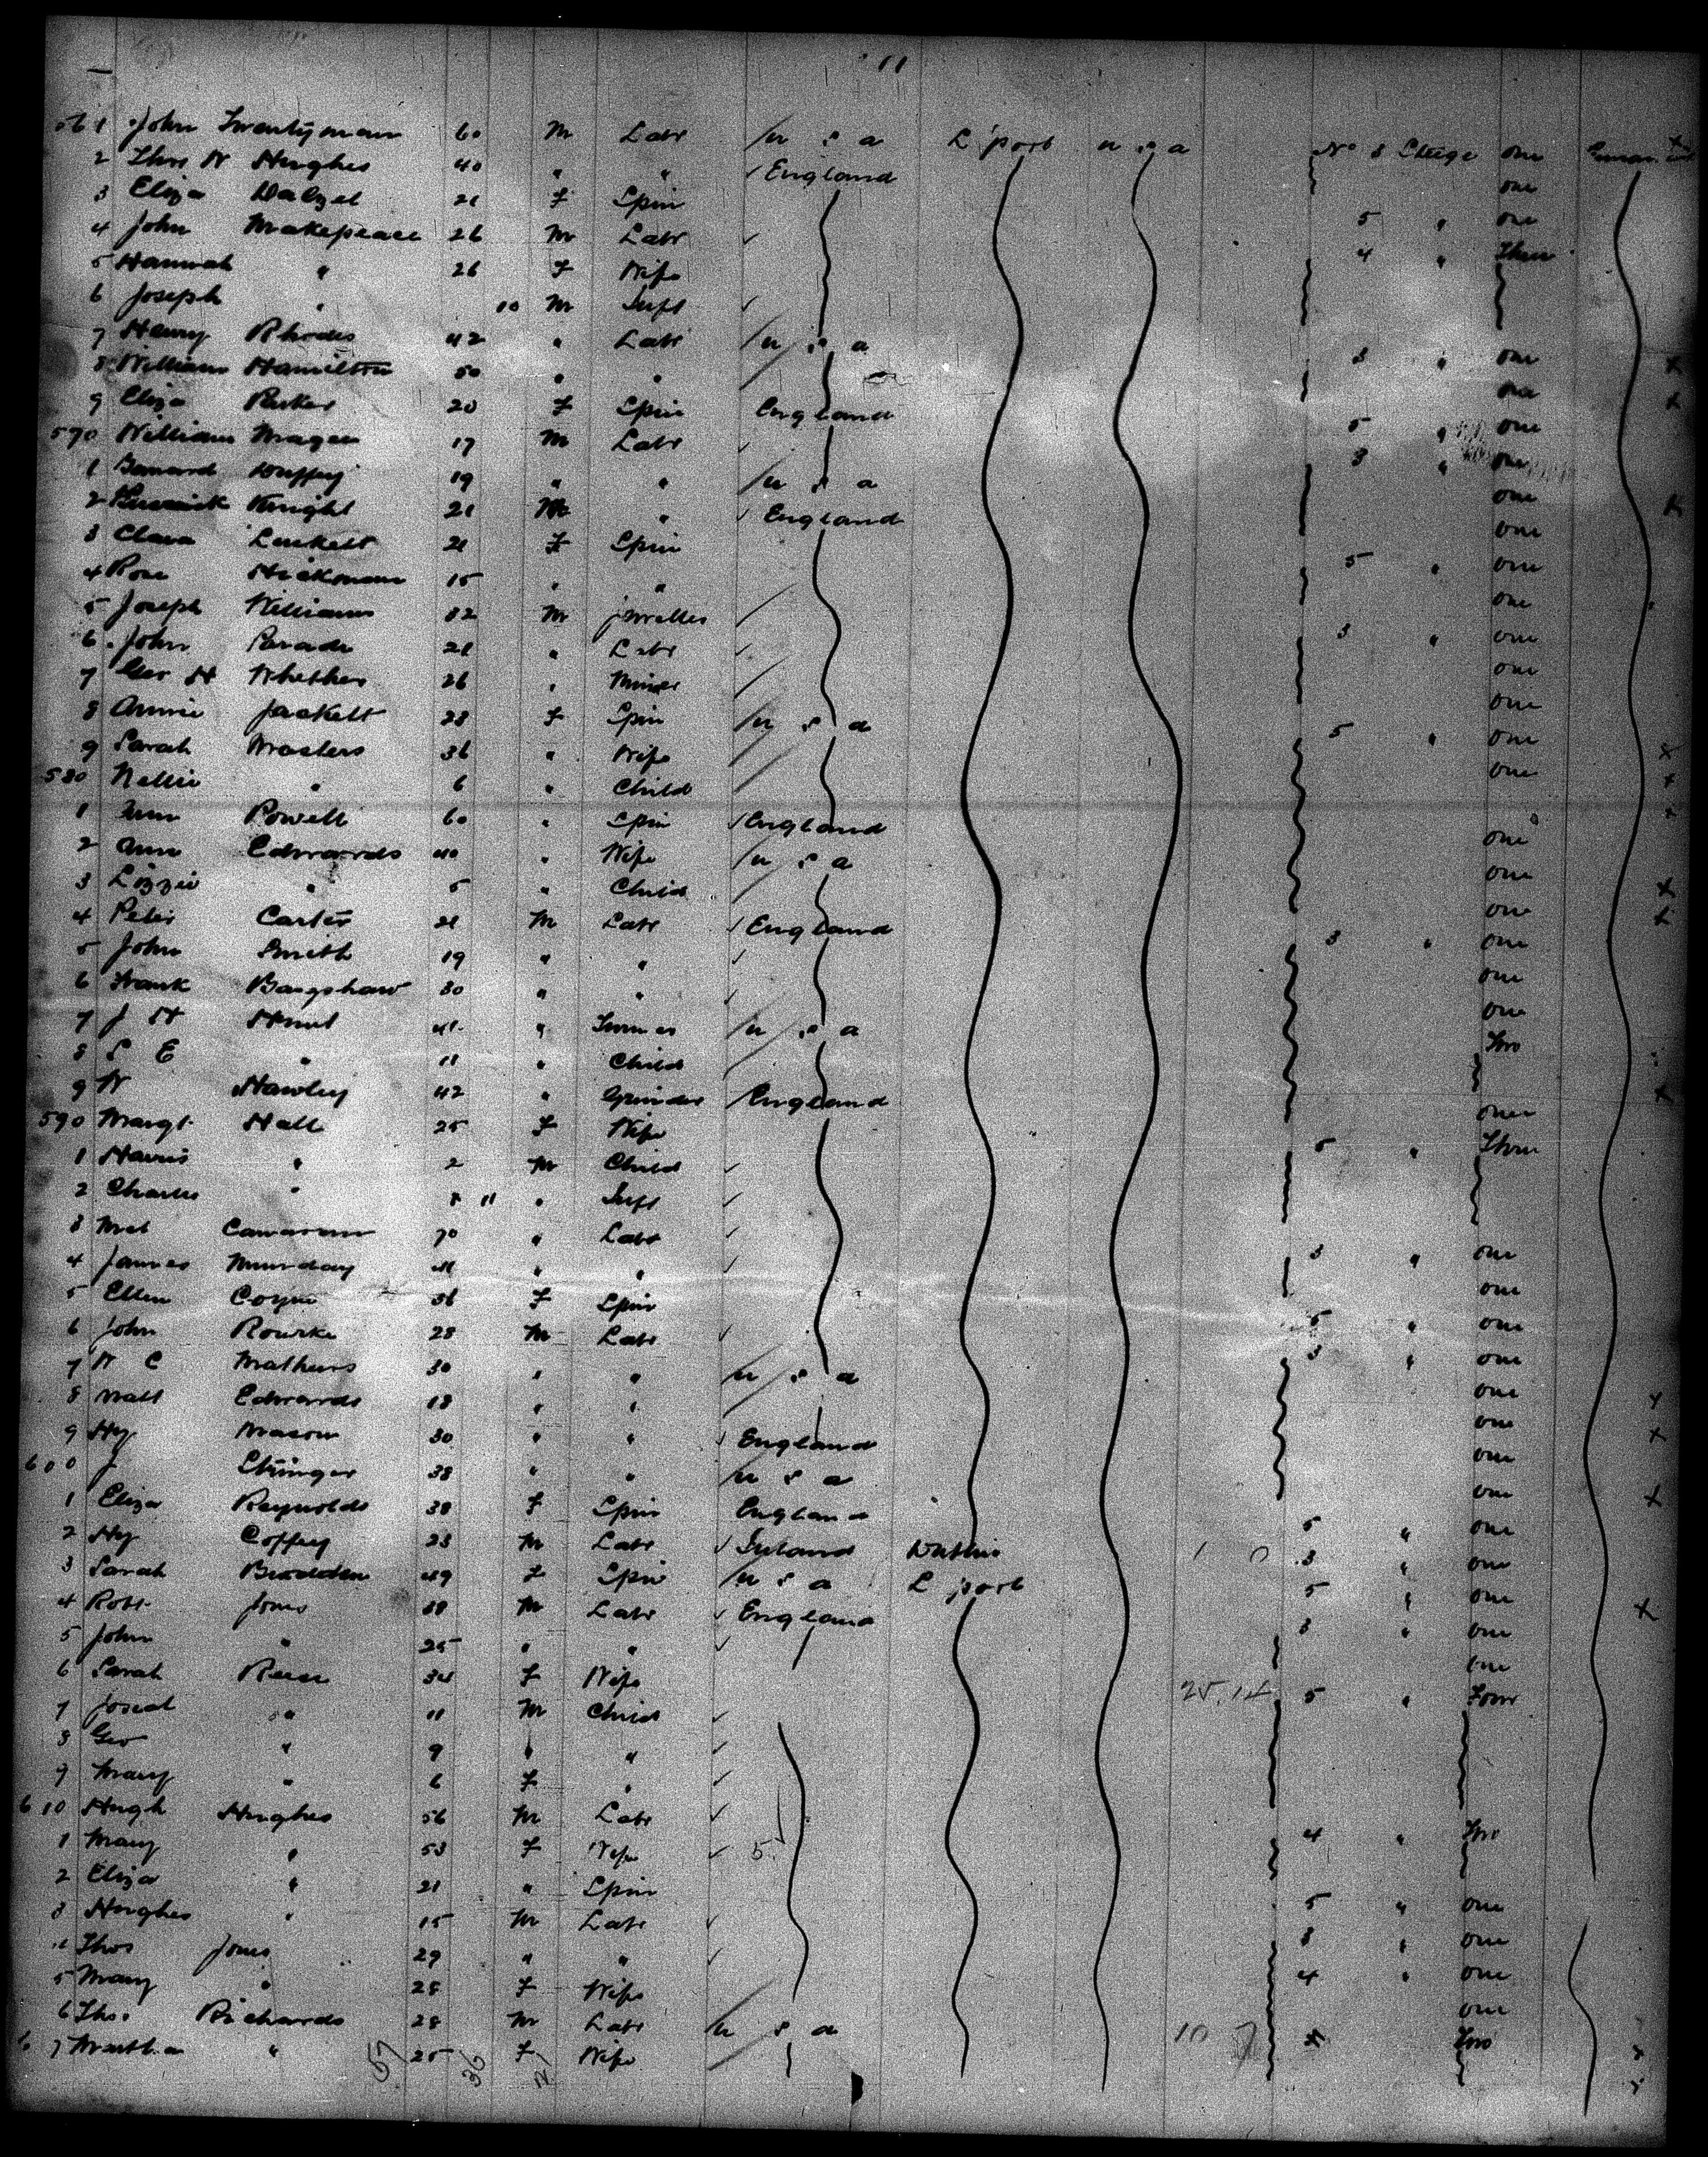 11
561 John Twentyman 60 M Labr U S A L'pool U S A No 3 Steege one
2 Thos W Hughes 40 " " England one
3 Eliza Dalzel 21 F Spin 5 " one
4 John Makepeace 26 M Labr 4 " Three
5 Hannah " 26 F Wife
6 Joseph " 10 M Inft
7 Henry Rhodes 42 " Labr U S A 3 " one
8 William Hamilton 50 " " one
9 Eliza Parker 20 F Spin England 5 " one
570 William Magee 17 M Labr 3 " one
1 Duffey 19 " " U S A one
2 Knight 21 M " England one
3 Clara Luckett 21 F Spin 5 " one
4 Rose Hickman 15 " " one
5 Joseph Williams 32 M jeweller 3 " one
6 John 21 " Labr one
7 Geo H 26 " Miner one
8 Annie Jackett 28 F Spin U S A 5 " one
9 Sarah Masters 36 " Wife one
580 Nellie " 6 " Child
1 Ann Powell 60 " Spin England one
2 Ann Edwards 40 " Wife U S A one
3 Lizzie " 5 " Child one
4 Peter Carter 21 M Labr England 3 " one
5 John Smith 19 " " one
6 Frank Bagshaw 30 " " one
7 J H Hunt 41 " Turner U S A Two
8 S E " 11 " Child
9 W Hawley 42 " Grinder England one
590 Margt Hall 25 F Wife 5 " Three
1 Harris " 2 M Child
2 Charles " 11 " Inft
3 70 " Labr 3 " one
4 James Munday " " one
5 Ellen Coyne 36 F Spin 5 " one
6 John Rourke 28 M Labr 3 " one
7 W C Mathews 30 " " U S A one
8 Matt Edwards 18 " " one
9 Hy Mason 30 " " England one
600 J Stringer 38 " " U S A one
1 Eliza Reynolds 38 F Spin England 5 " one
2 Hy Coffey 23 M Labr Ireland Dublin 3 " one
3 Sarah 49 F Spin U S A L'pool 5 " one
4 Robt Jones 38 M Labr England 3 " one
5 John " 25 " " one
6 Sarah Rees 34 F Wife 25.14 5 " Four
7 Josiah " 11 M Child
8 Geo " 9 " "
9 Mary " 6 F "
610 Hugh Hughes 56 M Labr 4 " Two
1 Mary " 53 F Wife 5
2 Eliza " 21 " Spin 5 " one
3 Hughes " 15 M Labr 3 " one
4 Thos Jones 29 " " 4 " one
5 Mary " 28 F Wife one
6 Thos Richards 28 M Labr U S A 10 4 Two
7 Martha " 25 F Wife
57 36 21